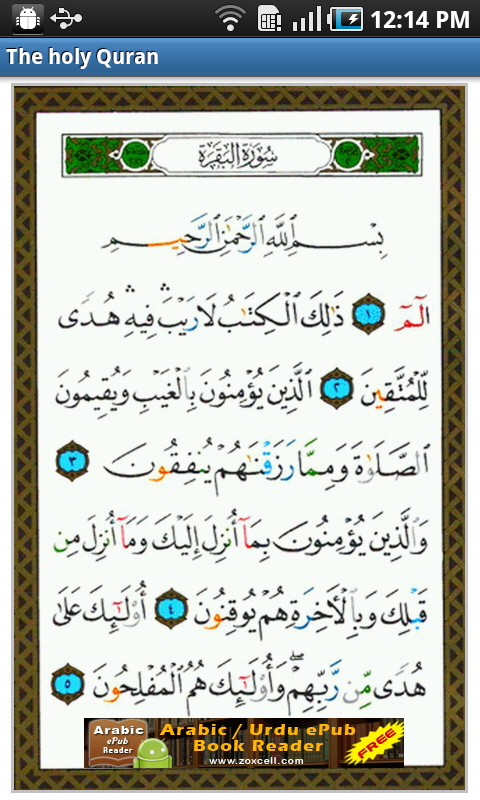 12:14 PM
The holy Quran
سُورَةُ البَقَرَة
بِسْمِ اللَّهِ الرَّحْمَٰنِ الرَّحِيمِ
الٓمٓ ١ ذَٰلِكَ الْكِتَٰبُ لَا رَيْبَ ۛ فِيهِ ۛ هُدًى
لِّلْمُتَّقِينَ ٢ الَّذِينَ يُؤْمِنُونَ بِالْغَيْبِ وَيُقِيمُونَ
الصَّلَوٰةَ وَمِمَّا رَزَقْنَٰهُمْ يُنفِقُونَ ٣
وَالَّذِينَ يُؤْمِنُونَ بِمَآ أُنزِلَ إِلَيْكَ وَمَآ أُنزِلَ مِن
قَبْلِكَ وَبِالْأَخِرَةِ هُمْ يُوقِنُونَ ٤ أُوْلَٰٓئِكَ عَلَىٰ
هُدًى مِّن رَّبِّهِمْ ۖ وَأُوْلَٰٓئِكَ هُمُ الْمُفْلِحُونَ ٥
Arabic ePub Reader
Arabic / Urdu ePub
Book Reader
www.zoxcell.com
FREE